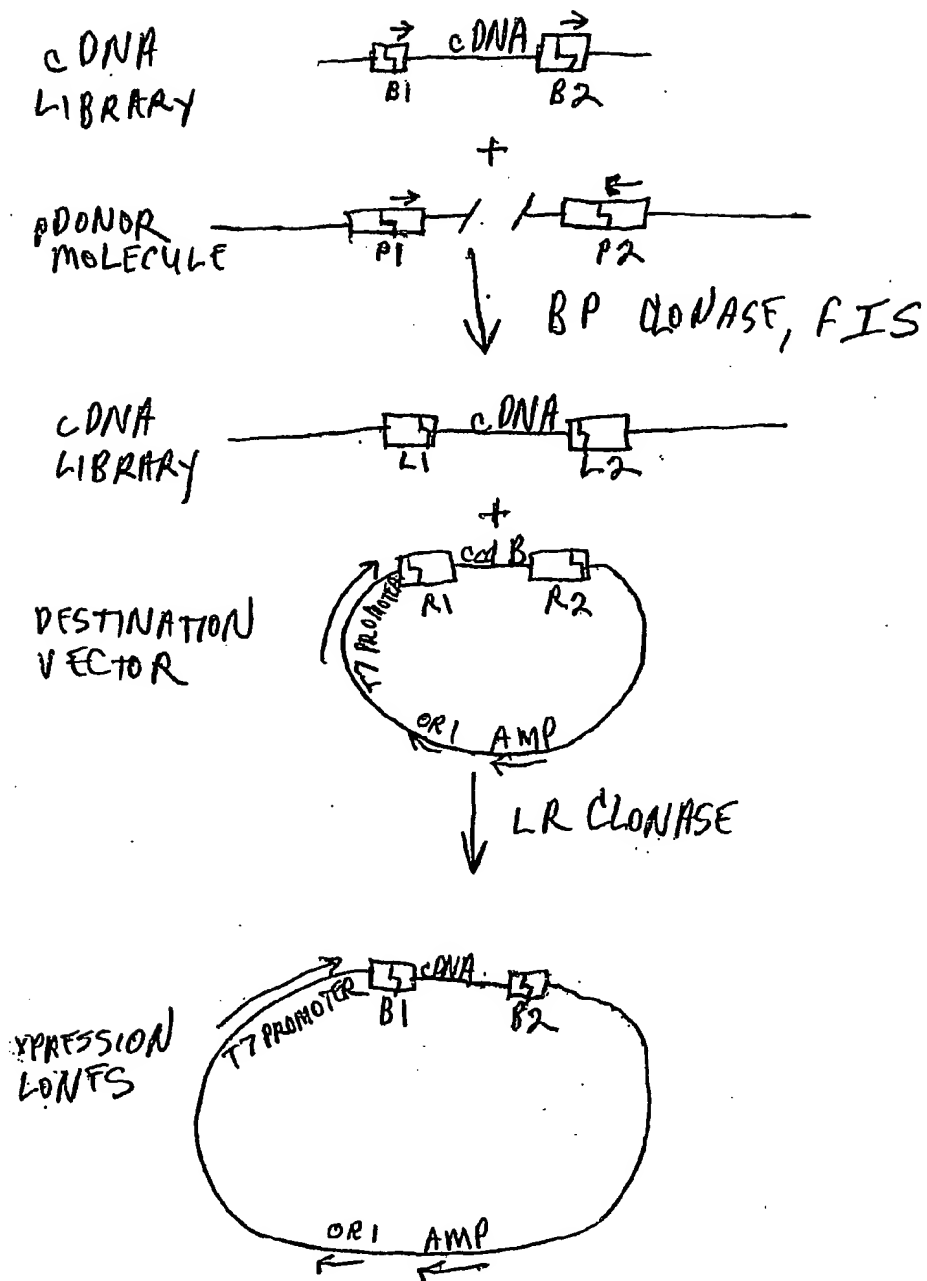 cDNA LIBRARY
cDNA
B1
B2
+
pDONOR MOLECULE
P1
P2
BP CLONASE, FIS
cDNA LIBRARY
cDNA
L1
L2
+
DESTINATION VECTOR
ccd B
R1
R2
T7 PROMOTER
ORI
AMP
LR CLONASE
XPRESSION LONES
T7 PROMOTER
cDNA
B1
B2
ORI
AMP